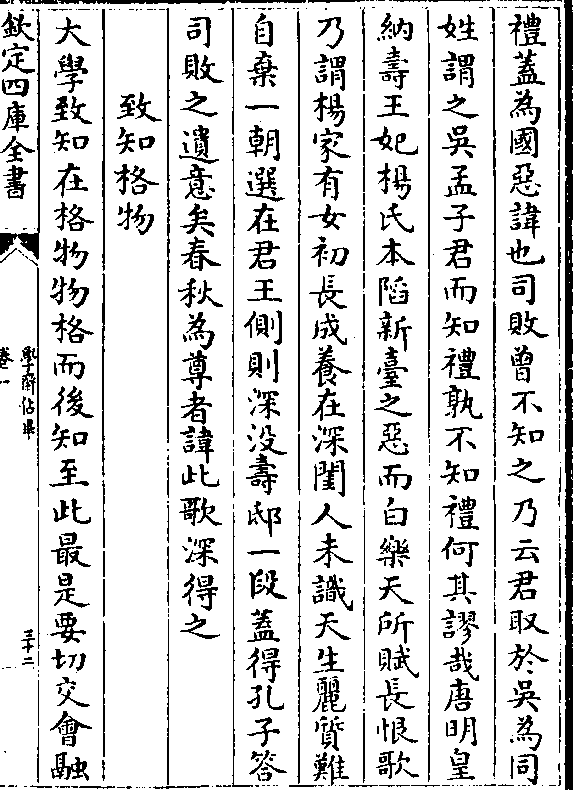 禮蓋為國惡諱也司敗曾不知之乃云君取於吳為同
姓謂之吳孟子君而知禮孰不知禮何其謬哉唐明皇
納壽王妃楊氏本陷新臺之惡而白樂天所賦長恨歌
乃謂楊家有女初長成養在深閨人未識天生麗質難
自棄一朝選在君王側則深没壽邸一段蓋得孔子答
司敗之遺意矣春秋為尊者諱此歌深得之
致知格物
大學致知在格物物格而後知至此最是要切交會融
欽定四庫全書
學齋佔畢
卷一
三十二